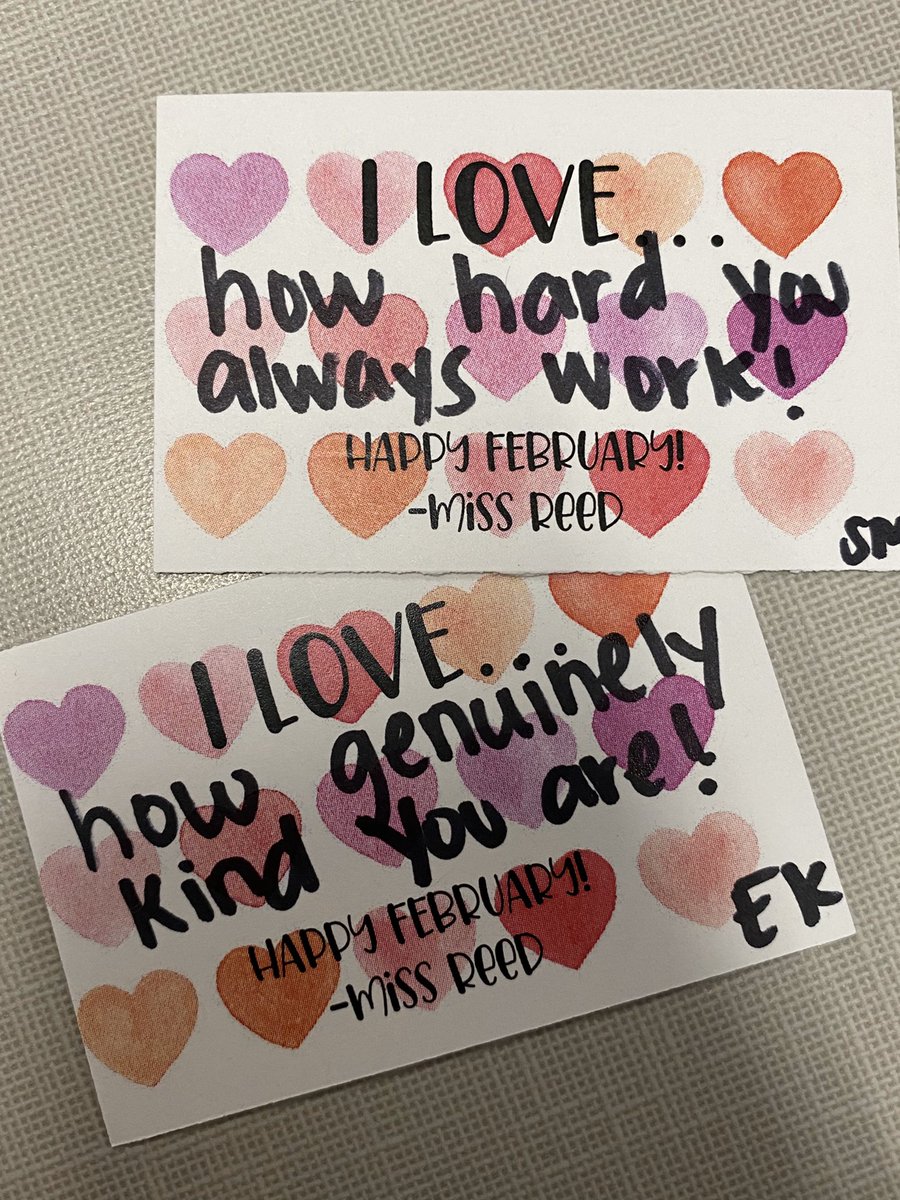 I LOVE...
how hard you
always work!
HAPPY FEBRUARY!
-MISS REED
SM
I LOVE...
how genuinely
kind you are!
HAPPY FEBRUARY!
-MISS REED
EK